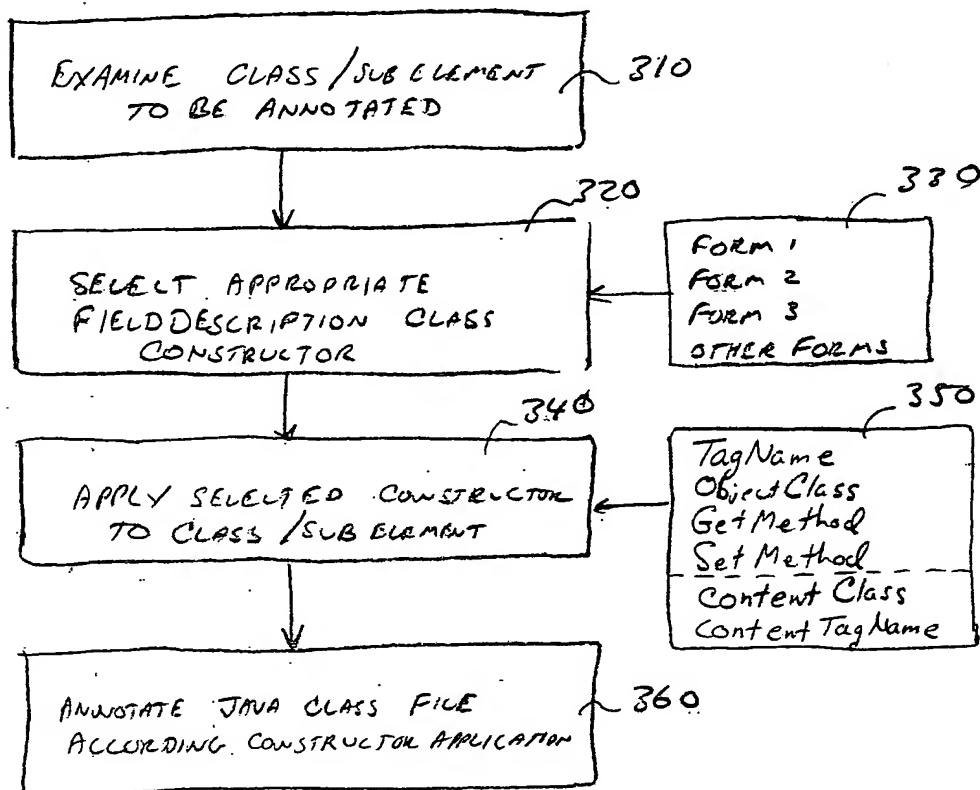 EXAMINE CLASS/SUBELEMENT
TO BE ANNOTATED
310
320
SELECT APPROPRIATE
FIELDDESCRIPTION CLASS
CONSTRUCTOR
330
FORM 1
FORM 2
FORM 3
OTHER FORMS
340
APPLY SELECTED CONSTRUCTOR
TO CLASS/SUBELEMENT
350
TagName
ObjectClass
GetMethod
SetMethod
Content Class
Content TagName
ANNOTATE JAVA CLASS FILE
ACCORDING CONSTRUCTOR APPLICATION
360